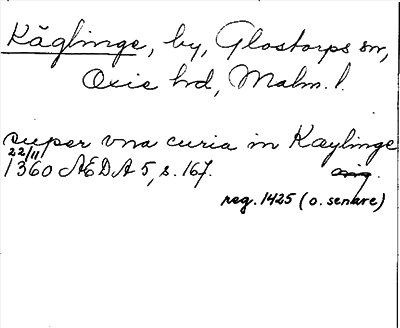 Käglinge, by, Glostorps sn,
Oxie hd, Malm. l.
super vna curia in Kaylinge
22/11
1360 ÆDA 5, s. 167.
reg. 1425 (o. senare)